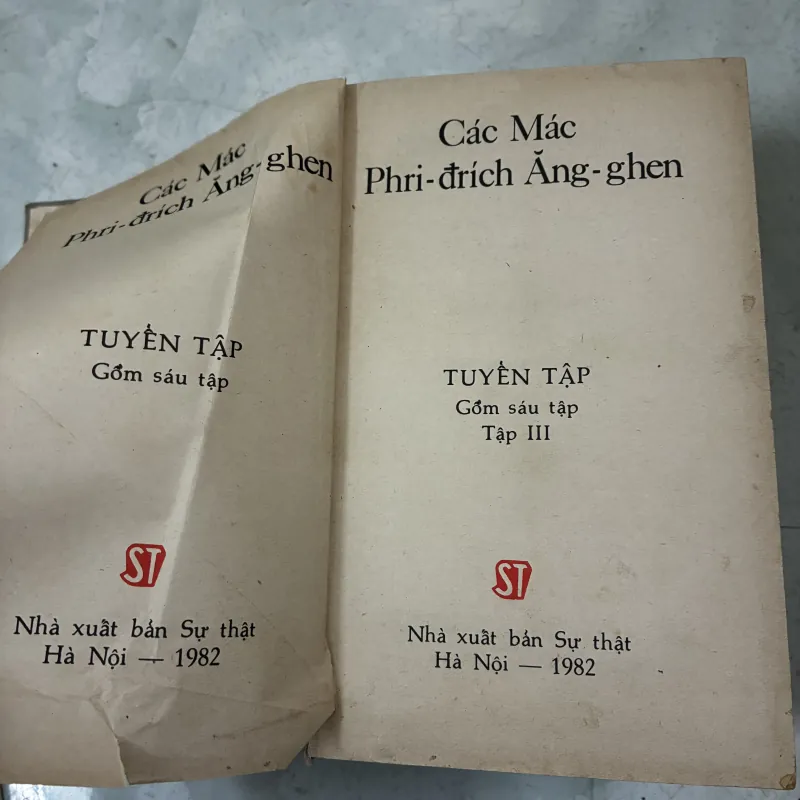 Các Mác
Phri-đrích Ăng-ghen
TUYỂN TẬP
Gồm sáu tập
ST
Nhà xuất bản Sự thật
Hà Nội — 1982
Các Mác
Phri-đrích Ăng-ghen
TUYỂN TẬP
Gồm sáu tập
Tập III
ST
Nhà xuất bản Sự thật
Hà Nội — 1982